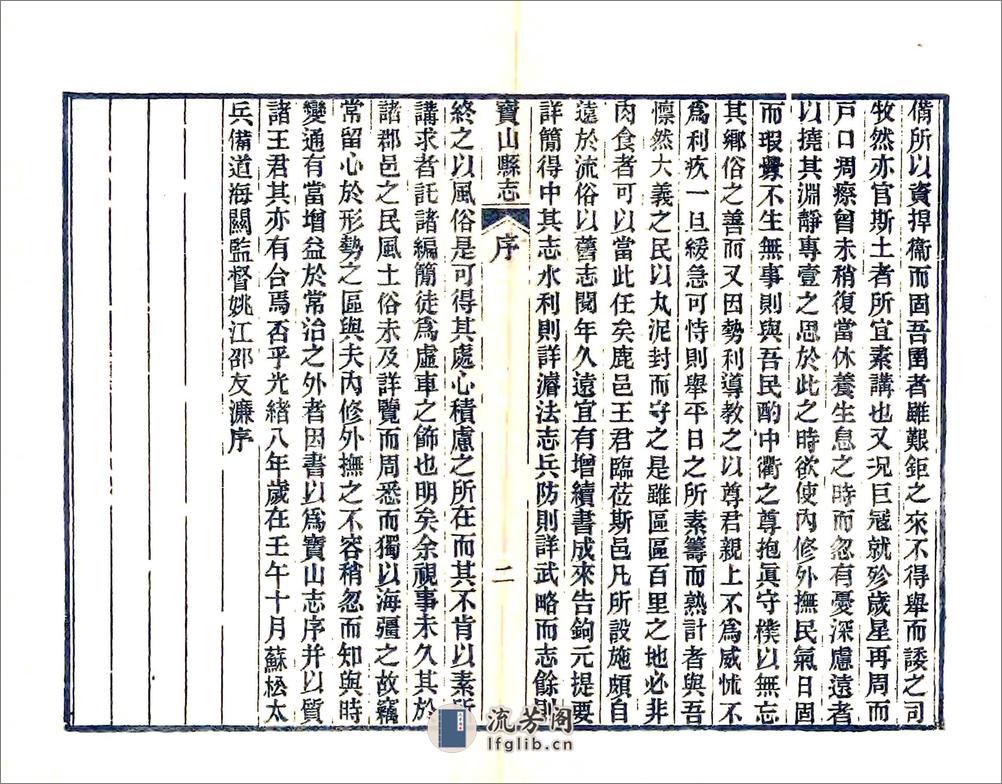 備所以資捍衞而固吾圉者雖艱鉅之來不得舉而諉之司
牧然亦官斯土者所宜素講也又況巨寇就殄歲星再周而
戸口凋瘵曾未稍復當休養生息之時而忽有憂深慮遠者
以撓其淵靜專壹之思於此之時欲使內修外撫民氣日固
而瑕釁不生無事則與吾民酌中衢之尊抱眞守樸以無忘
其鄉俗之善而又因勢利導教之以尊君親上不爲威怵不
爲利疚一旦緩急可恃則舉平日之所素籌而熟計者與吾
懍然大義之民以丸泥封而守之是雖區區百里之地必非
肉食者可以當此任矣鹿邑王君臨莅斯邑凡所設施頗自
遠於流俗以舊志閱年久遠宜有增續書成來告鉤元提要
詳簡得中其志水利則詳濬法志兵防則詳武略而志餘則
寶山縣志 序 二
終之以風俗是可得其處心積慮之所在而其不肯以素所
講求者託諸編簡徒爲虛車之飾也明矣余視事未久其於
諸郡邑之民風土俗未及詳覽而周悉而獨以海疆之故竊
常留心於形勢之區與夫內修外撫之不容稍忽而知與時
變通有當增益於常治之外者因書以爲寶山志序并以質
諸王君其亦有合焉否乎光緒八年歲在壬午十月蘇松太
兵備道海關監督姚江邵友濂序
流芳阁
lfglib.cn